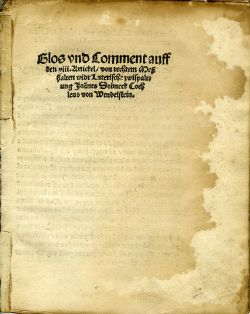 Glos vnd Comment auff
den viii. Artickel/ von rechtem Meß
halten widr Luterische zwispalt⸗
ung Joānes Dobneck Coch
leus von Wendelstein.